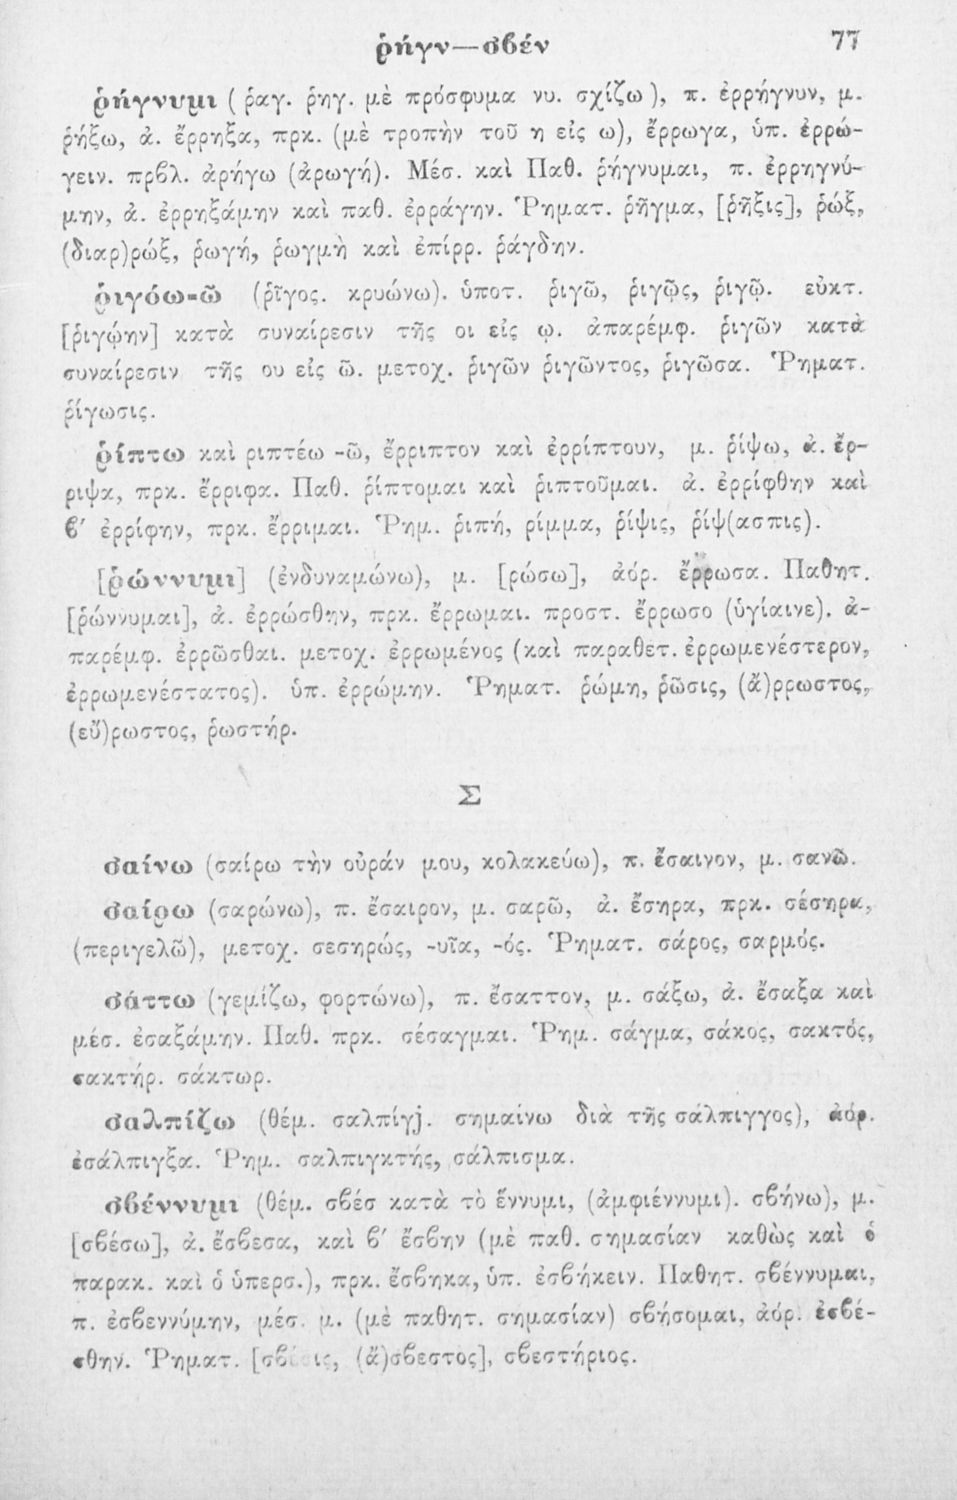 ῥήγν—σβέν 77
ῥήγνυμι (ῥαγ. ῥηγ. μὲ πρόσφυμα νυ. σχίζω), π. ἐρρήγνυν, μ.
ῥήξω, ἀ. ἔρρηξα, πρκ. (μὲ τροπὴν τοῦ η εἰς ω), ἔρρωγα, ὑπ. ἐρρώ-
γειν. πρβλ. ἀρήγω (ἀρωγή). Μέσ. καὶ Παθ. ῥήγνυμαι, π. ἐρρηγνύ-
μην, ἀ. ἐρρηξάμην καὶ παθ. ἐρράγην. Ῥηματ. ῥῆγμα, [ῥῆξις], ῥώξ,
(διαρ)ρώξ, ῥωγή, ῥωγμὴ καὶ ἐπίρρ. ῥάγδην.
ῥιγόω-ῶ (ῥῖγος. κρυώνω). ὑποτ. ῥιγῶ, ῥιγῷς, ῥιγῷ. εὐκτ.
[ῥιγῴην] κατὰ συναίρεσιν τῆς οι εἰς ῳ. ἀπαρέμφ. ῥιγῶν κατὰ
συναίρεσιν τῆς ου εἰς ῶ. μετοχ. ῥιγῶν ῥιγῶντος, ῥιγῶσα. Ῥηματ.
ῥίγωσις.
ῥίπτω καὶ ριπτέω -ῶ, ἔρριπτον καὶ ἐρρίπτουν, μ. ῥίψω, ἀ. ἔρ-
ριψα, πρκ. ἔρριφα. Παθ. ῥίπτομαι καὶ ῥιπτοῦμαι. ἀ. ἐρρίφθην καὶ
β΄ ἐρρίφην, πρκ. ἔρριμαι. Ῥημ. ῥιπή, ρίμμα, ῥίψις, ῥίψ(ασπις).
[ῥώννυμι] (ἐνδυναμώνω), μ. [ρώσω], ἀόρ. ἔρρωσα. Παθητ.
[ῥώννυμαι], ἀ. ἐρρώσθην, πρκ. ἔρρωμαι. προστ. ἔρρωσο (ὑγίαινε). ἀ-
παρέμφ. ἐρρῶσθαι. μετοχ. ἐρρωμένος (καὶ παραθετ. ἐρρωμενέστερον,
ἐρρωμενέστατος). ὑπ. ἐρρώμην. Ῥηματ. ῥώμη, ῥῶσις, (ἄ)ρρωστος,
(εὔ)ρωστος, ῥωστήρ.
Σ
σαίνω (σαίρω τὴν οὐράν μου, κολακεύω), π. ἔσαινον, μ. σανῶ.
σαίρω (σαρώνω), π. ἔσαιρον, μ. σαρῶ, ἀ. ἔσηρα, πρκ. σέσηρα,
(περιγελῶ), μετοχ. σεσηρώς, -υῖα, -ός. Ῥηματ. σάρος, σαρμός.
σάττω (γεμίζω, φορτώνω), π. ἔσαττον, μ. σάξω, ἀ. ἔσαξα καὶ
μέσ. ἐσαξάμην. Παθ. πρκ. σέσαγμαι. Ῥημ. σάγμα, σάκος, σακτός,
σακτήρ. σάκτωρ.
σαλπίζω (θέμ. σαλπίγj. σημαίνω διὰ τῆς σάλπιγγος), ἀόρ.
ἐσάλπιγξα. Ῥημ. σαλπιγκτής, σάλπισμα.
σβέννυμι (θέμ. σβέσ κατὰ τὸ ἕννυμι, (ἀμφιέννυμι). σβήνω), μ.
[σβέσω], ἀ. ἔσβεσα, καὶ β΄ ἔσβην (μὲ παθ. σημασίαν καθὼς καὶ ὁ
παρακ. καὶ ὁ ὑπερσ.), πρκ. ἔσβηκα, ὑπ. ἐσβήκειν. Παθητ. σβέννυμαι,
π. ἐσβεννύμην, μέσ. μ. (μὲ παθητ. σημασίαν) σβήσομαι, ἀόρ. ἐσβέ-
σθην. Ῥηματ. (ἄ)σβεστος], σβεστήριος.